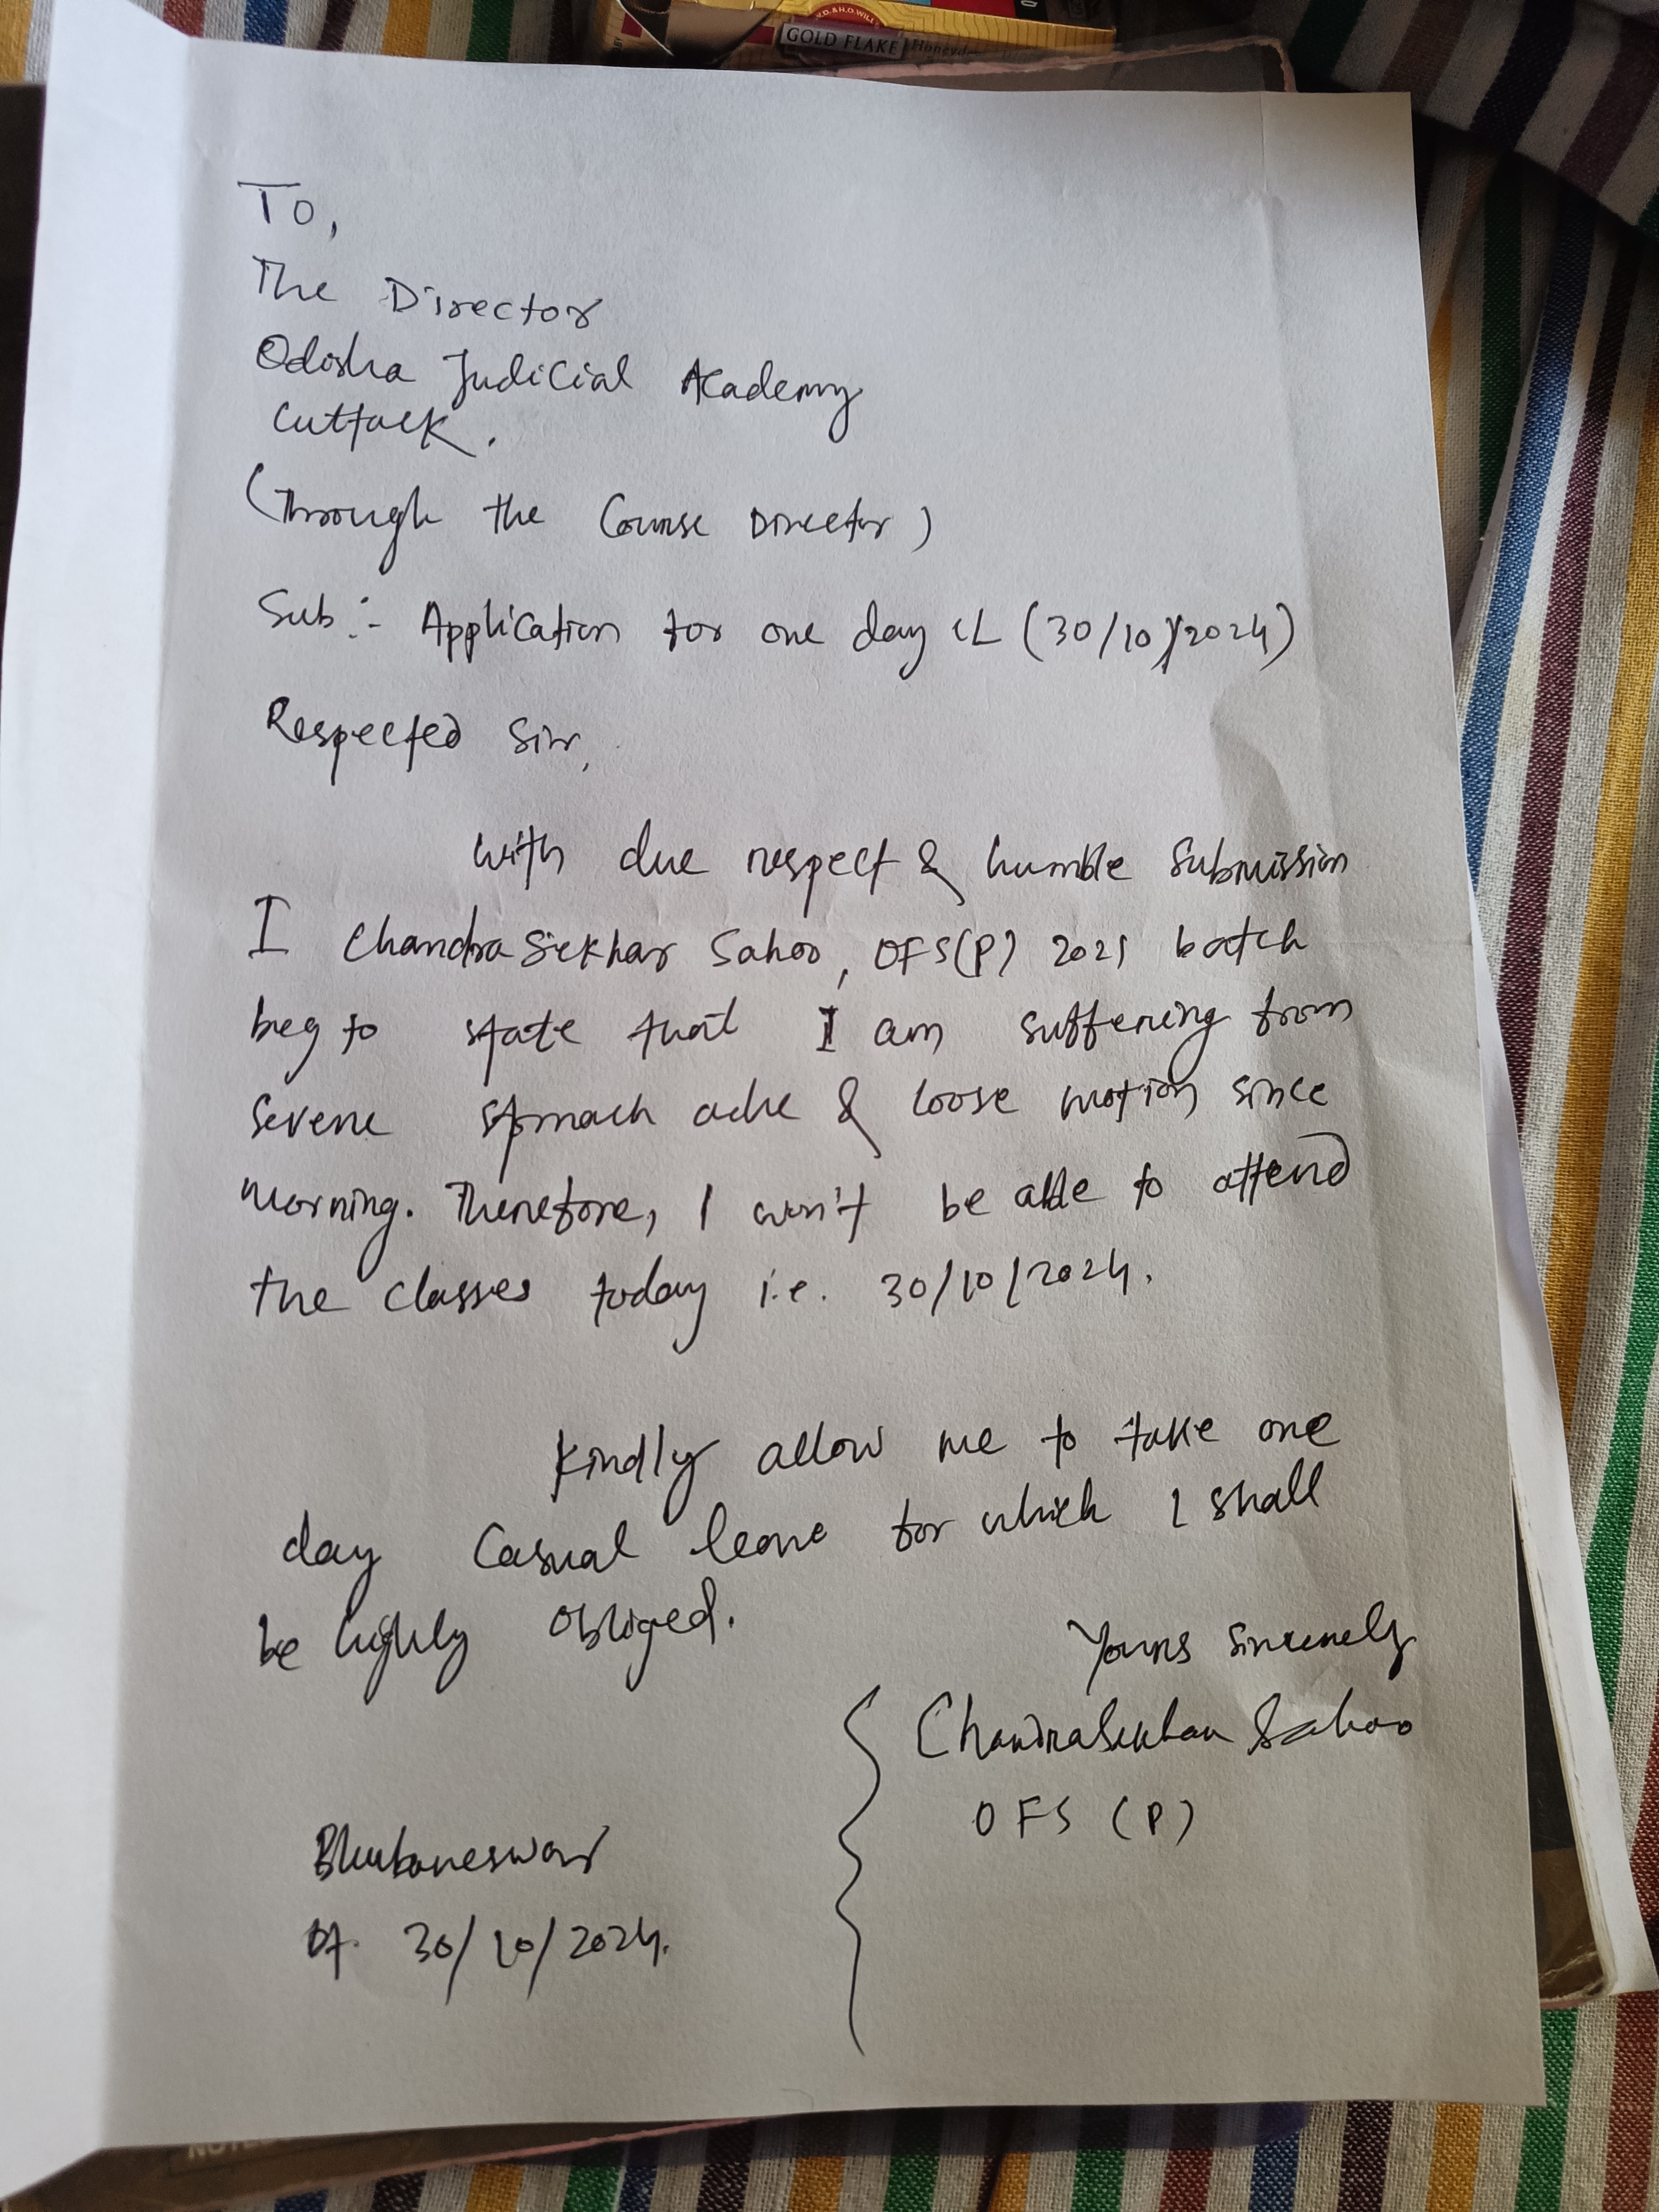 V.D.&H.O.WILL
GOLD FLAKE Honeyd
To,
The Director
Odisha Judicial Academy
Cuttack.
(Through the Course Director)
Sub:- Application for one day CL (30/10/2024)
Respected Sir,
With due respect & humble submission
I Chandra Sekhar Sahoo, OFS(P) 2021 batch
beg to state that I am suffering from
severe stomach ache & loose motion since
morning. Therefore, I won't be able to attend
the classes today i.e. 30/10/2024.
Kindly allow me to take one
day Casual leave for which I shall
be highly obliged.
Yours sincerely
Chandra Sekhar Sahoo
OFS (P)
Bhubaneswar
Dt. 30/10/2024.